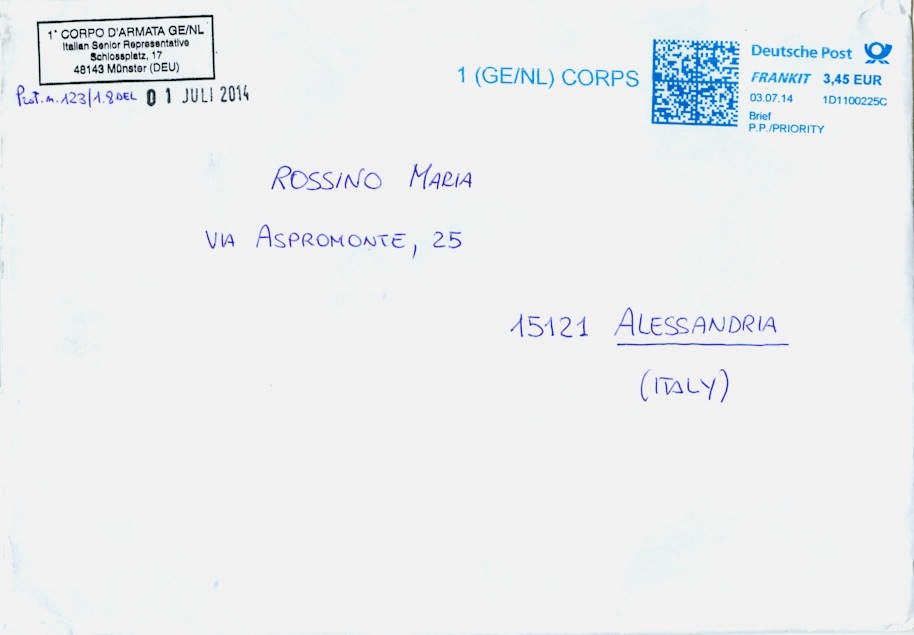 1° CORPO D'ARMATA GE/NL
Italian Senior Representative
Schlossplatz, 17
48143 Münster (DEU)
Prot. n. 123/1.8 DEL 01 JULI 2014
1 (GE/NL) CORPS
Deutsche Post
FRANKIT 3,45 EUR
03.07.14 1D1100225C
Brief
P.P./PRIORITY
ROSSINO MARIA
VIA ASPROMONTE, 25
15121 ALESSANDRIA
(ITALY)